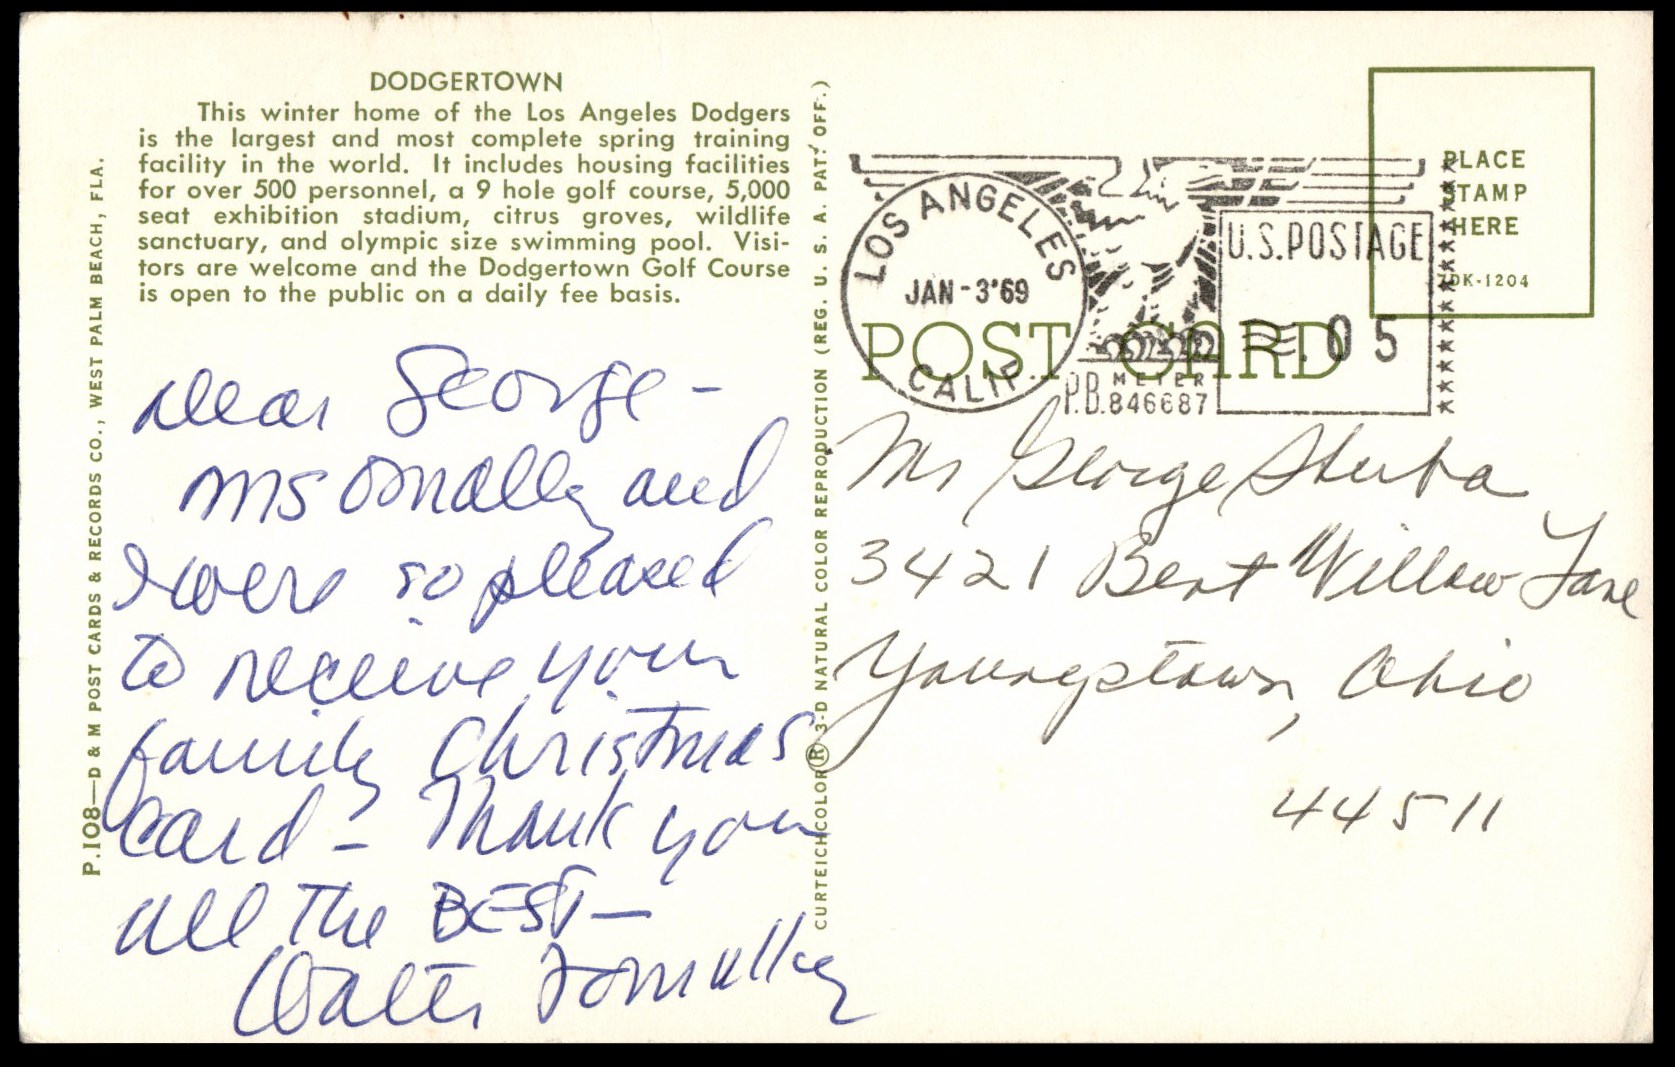 DODGERTOWN
This winter home of the Los Angeles Dodgers
is the largest and most complete spring training
facility in the world. It includes housing facilities
for over 500 personnel, a 9 hole golf course, 5,000
seat exhibition stadium, citrus groves, wildlife
sanctuary, and olympic size swimming pool. Visi-
tors are welcome and the Dodgertown Golf Course
is open to the public on a daily fee basis.
P.108—D & M POST CARDS & RECORDS CO., WEST PALM BEACH, FLA.
Dear George -
Mrs O'Malley and
I were so pleased
to receive your
family Christmas
card - Thank you
all The BEST -
Walter O'Malley
CURTEICHCOLOR® 3-D NATURAL COLOR REPRODUCTION (REG. U. S. A. PAT. OFF.)
LOS ANGELES
JAN -3'69
CALIF.
P.B. METER
846687
U.S.POSTAGE
.05
PLACE
STAMP
HERE
DK-1204
POST CARD
Mr George Sturba
3421 Bent Willow Lane
Youngstown, Ohio
44511